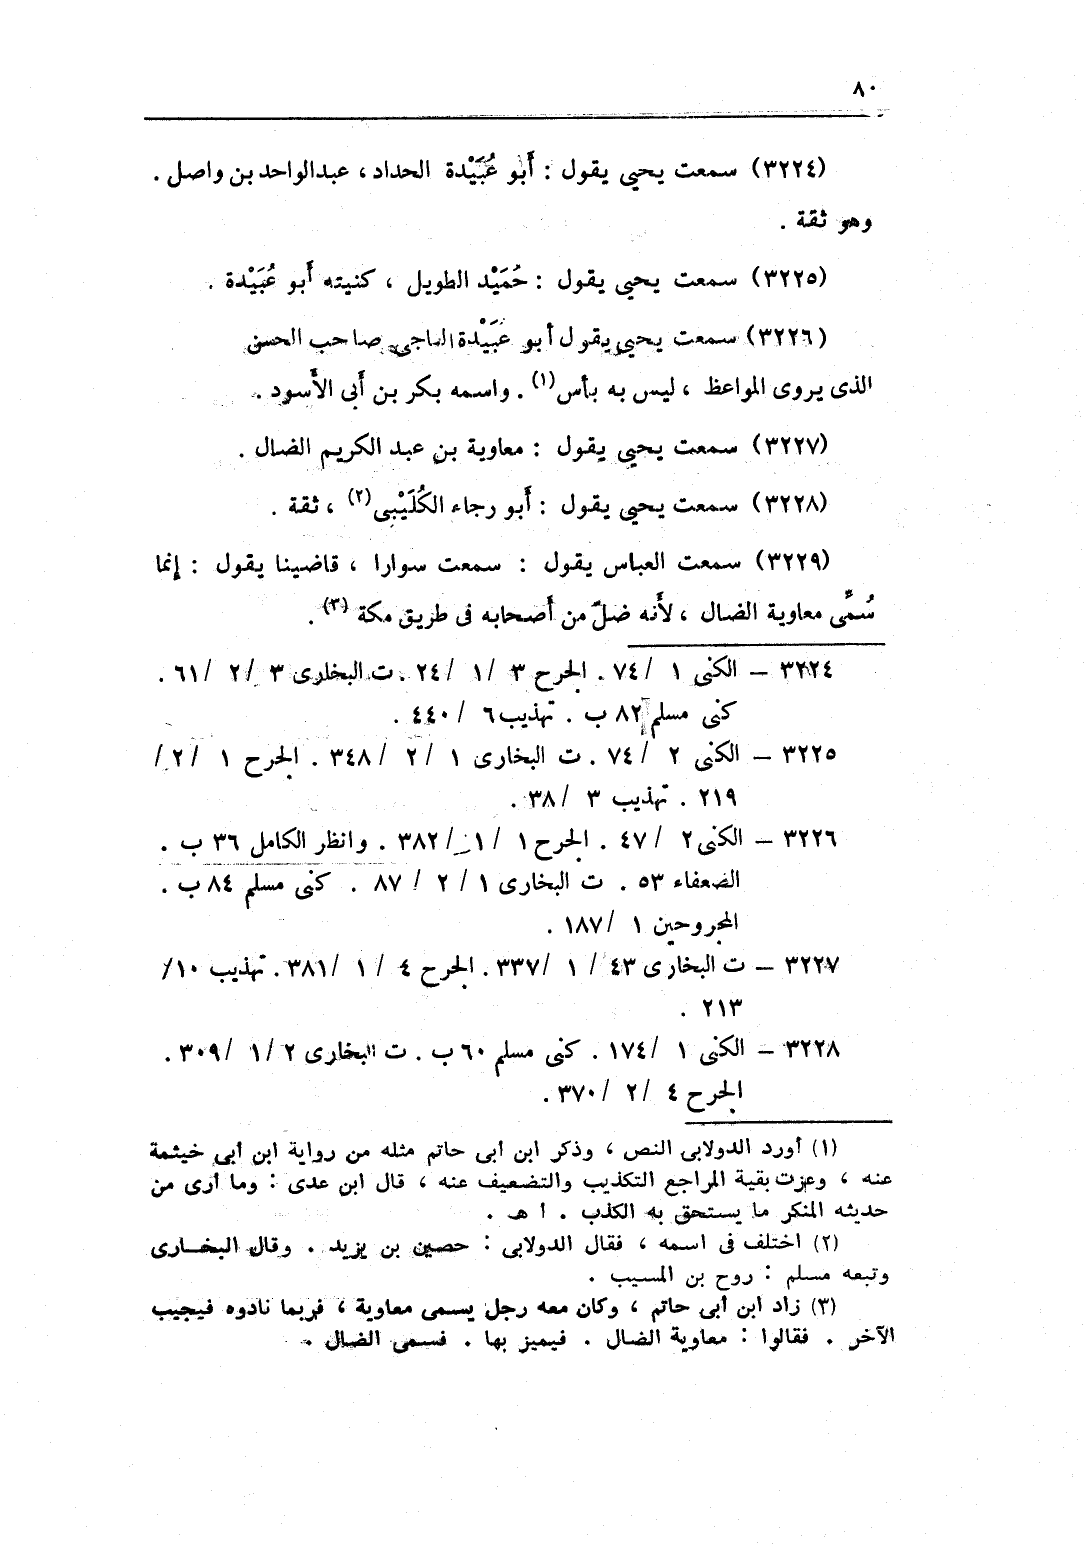 ٨٠
(٣٢٢٤) سمعت يحيى يقول : أَبو عُبَيْدة الحداد ، عبدالواحد بن واصل .
وهو ثقة .
(٣٢٢٥) سمعت يحيى يقول : حُمَيْد الطويل ، كنيته أَبو عُبَيْدة .
(٣٢٢٦) سمعت يحيى يقول أبو عُبَيْدة الناجى صاحب الحسن
الذى يروى المواعظ ، ليس به بأس(١) . واسمه بكر بن أَبى الأَسود .
(٣٢٢٧) سمعت يحيى يقول : معاوية بن عبد الكريم الضال .
(٣٢٢٨) سمعت يحيى يقول : أَبو رجاء الكُلَيْبى(٢) ، ثقة .
(٣٢٢٩) سمعت العباس يقول : سمعت سوارا ، قاضينا يقول : إنما
سُمِّى معاوية الضال ، لأَنه ضلّ من أَصحابه فى طريق مكة (٣) .
٣٢٢٤ – الكنى ١ /٧٤ . الجرح ٣ /١ /٢٤ . ت البخارى ٣ /٢ /٦١ .
كنى مسلم ٨٢ ب . تهذيب ٦ /٤٤٠ .
٣٢٢٥ – الكنى ٢ /٧٤ . ت البخارى ١ /٢ /٣٤٨ . الجرح ١ /٢/
٢١٩ . تهذيب ٣ /٣٨ .
٣٢٢٦ – الكنى ٢ /٤٧ . الجرح ١ /١ /٣٨٢ . وانظر الكامل ٣٦ ب .
الضعفاء ٥٣ . ت البخارى ١ /٢ /٨٧ . كنى مسلم ٨٤ ب .
المجروحين ١ /١٨٧ .
٣٢٢٧ – ت البخارى ٤٣ /١ /٣٣٧ . الجرح ٤ /١ /٣٨١ . تهذيب ١٠/
٢١٣ .
٣٢٢٨ – الكنى ١ /١٧٤ . كنى مسلم ٦٠ ب . ت البخارى ٢ /١ /٣٠٩ .
الجرح ٤ /٢ /٣٧٠ .
(١) أورد الدولابى النص ، وذكر ابن أبى حاتم مثله من رواية ابن أبى خيثمة
عنه ، وعزت بقية المراجع التكذيب والتضعيف عنه ، قال ابن عدى : وما أرى من
حديثه المنكر ما يستحق به الكذب . أ هـ .
(٢) اختلف فى اسمه ، فقال الدولابى : حصين بن يزيد . وقال البخارى
وتبعه مسلم : روح بن المسيب .
(٣) زاد ابن أبى حاتم ، وكان معه رجل يسمى معاوية ، فربما نادوه فيجيب
الآخر . فقالوا : معاوية الضال . فيميز بها . فسمى الضال .